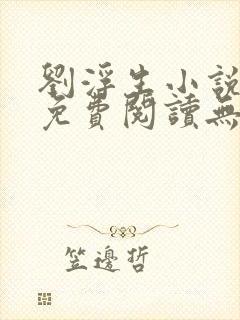 劉浮生小說
免費閱讀無
笠邊哲